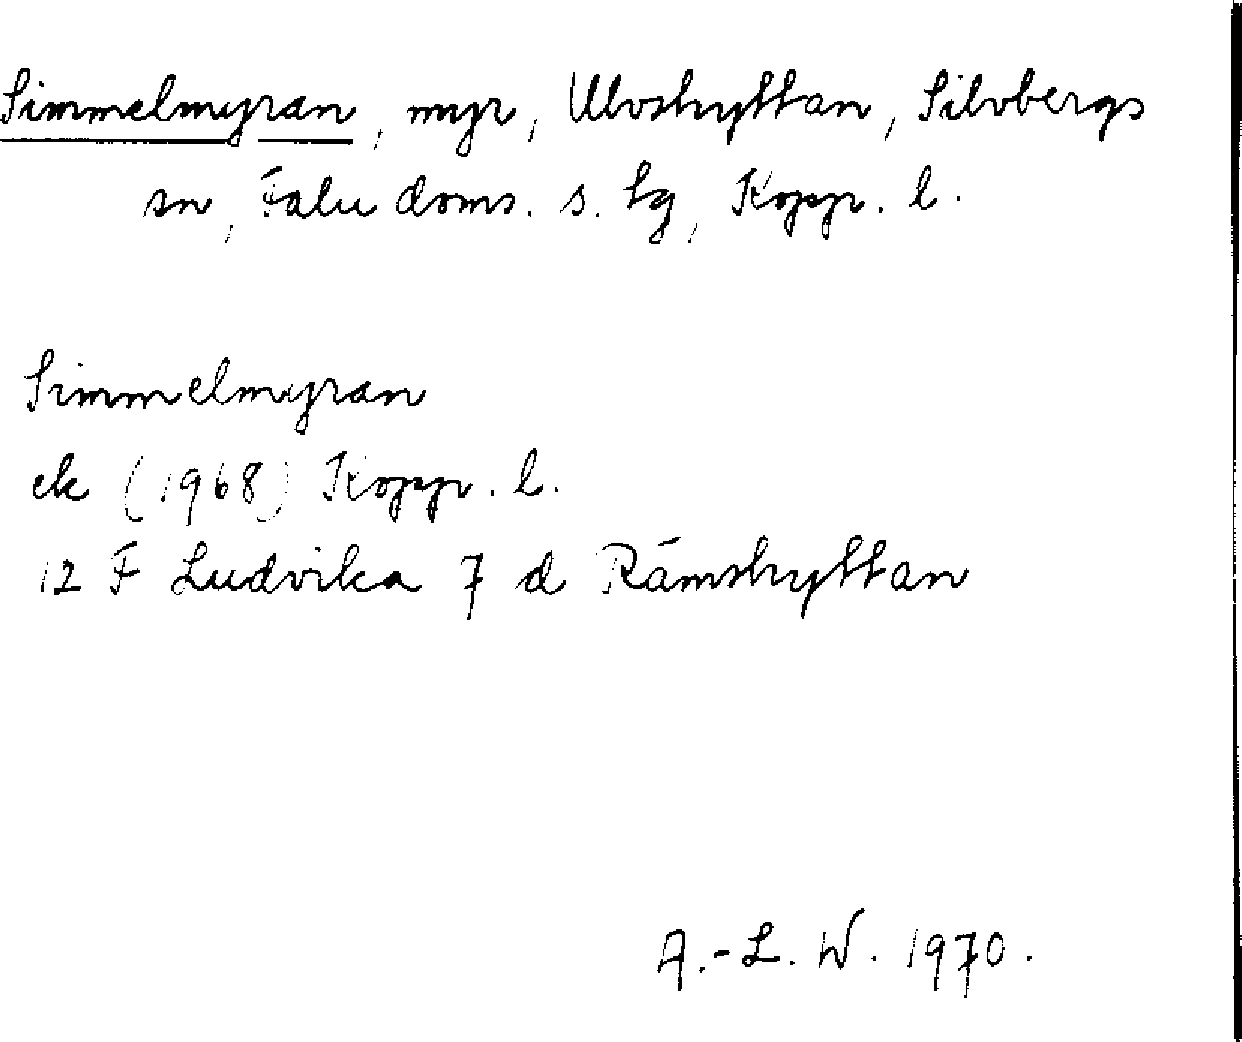 Simmelmyran, myr, Ulvshyttan, Silvbergs
sn, Falu doms. s. tg, Kopp. l.
Simmelmyran
ek (1968) Kopp. l.
12 F Ludvika 7 d Rämshyttan
A.-L. W. 1970.